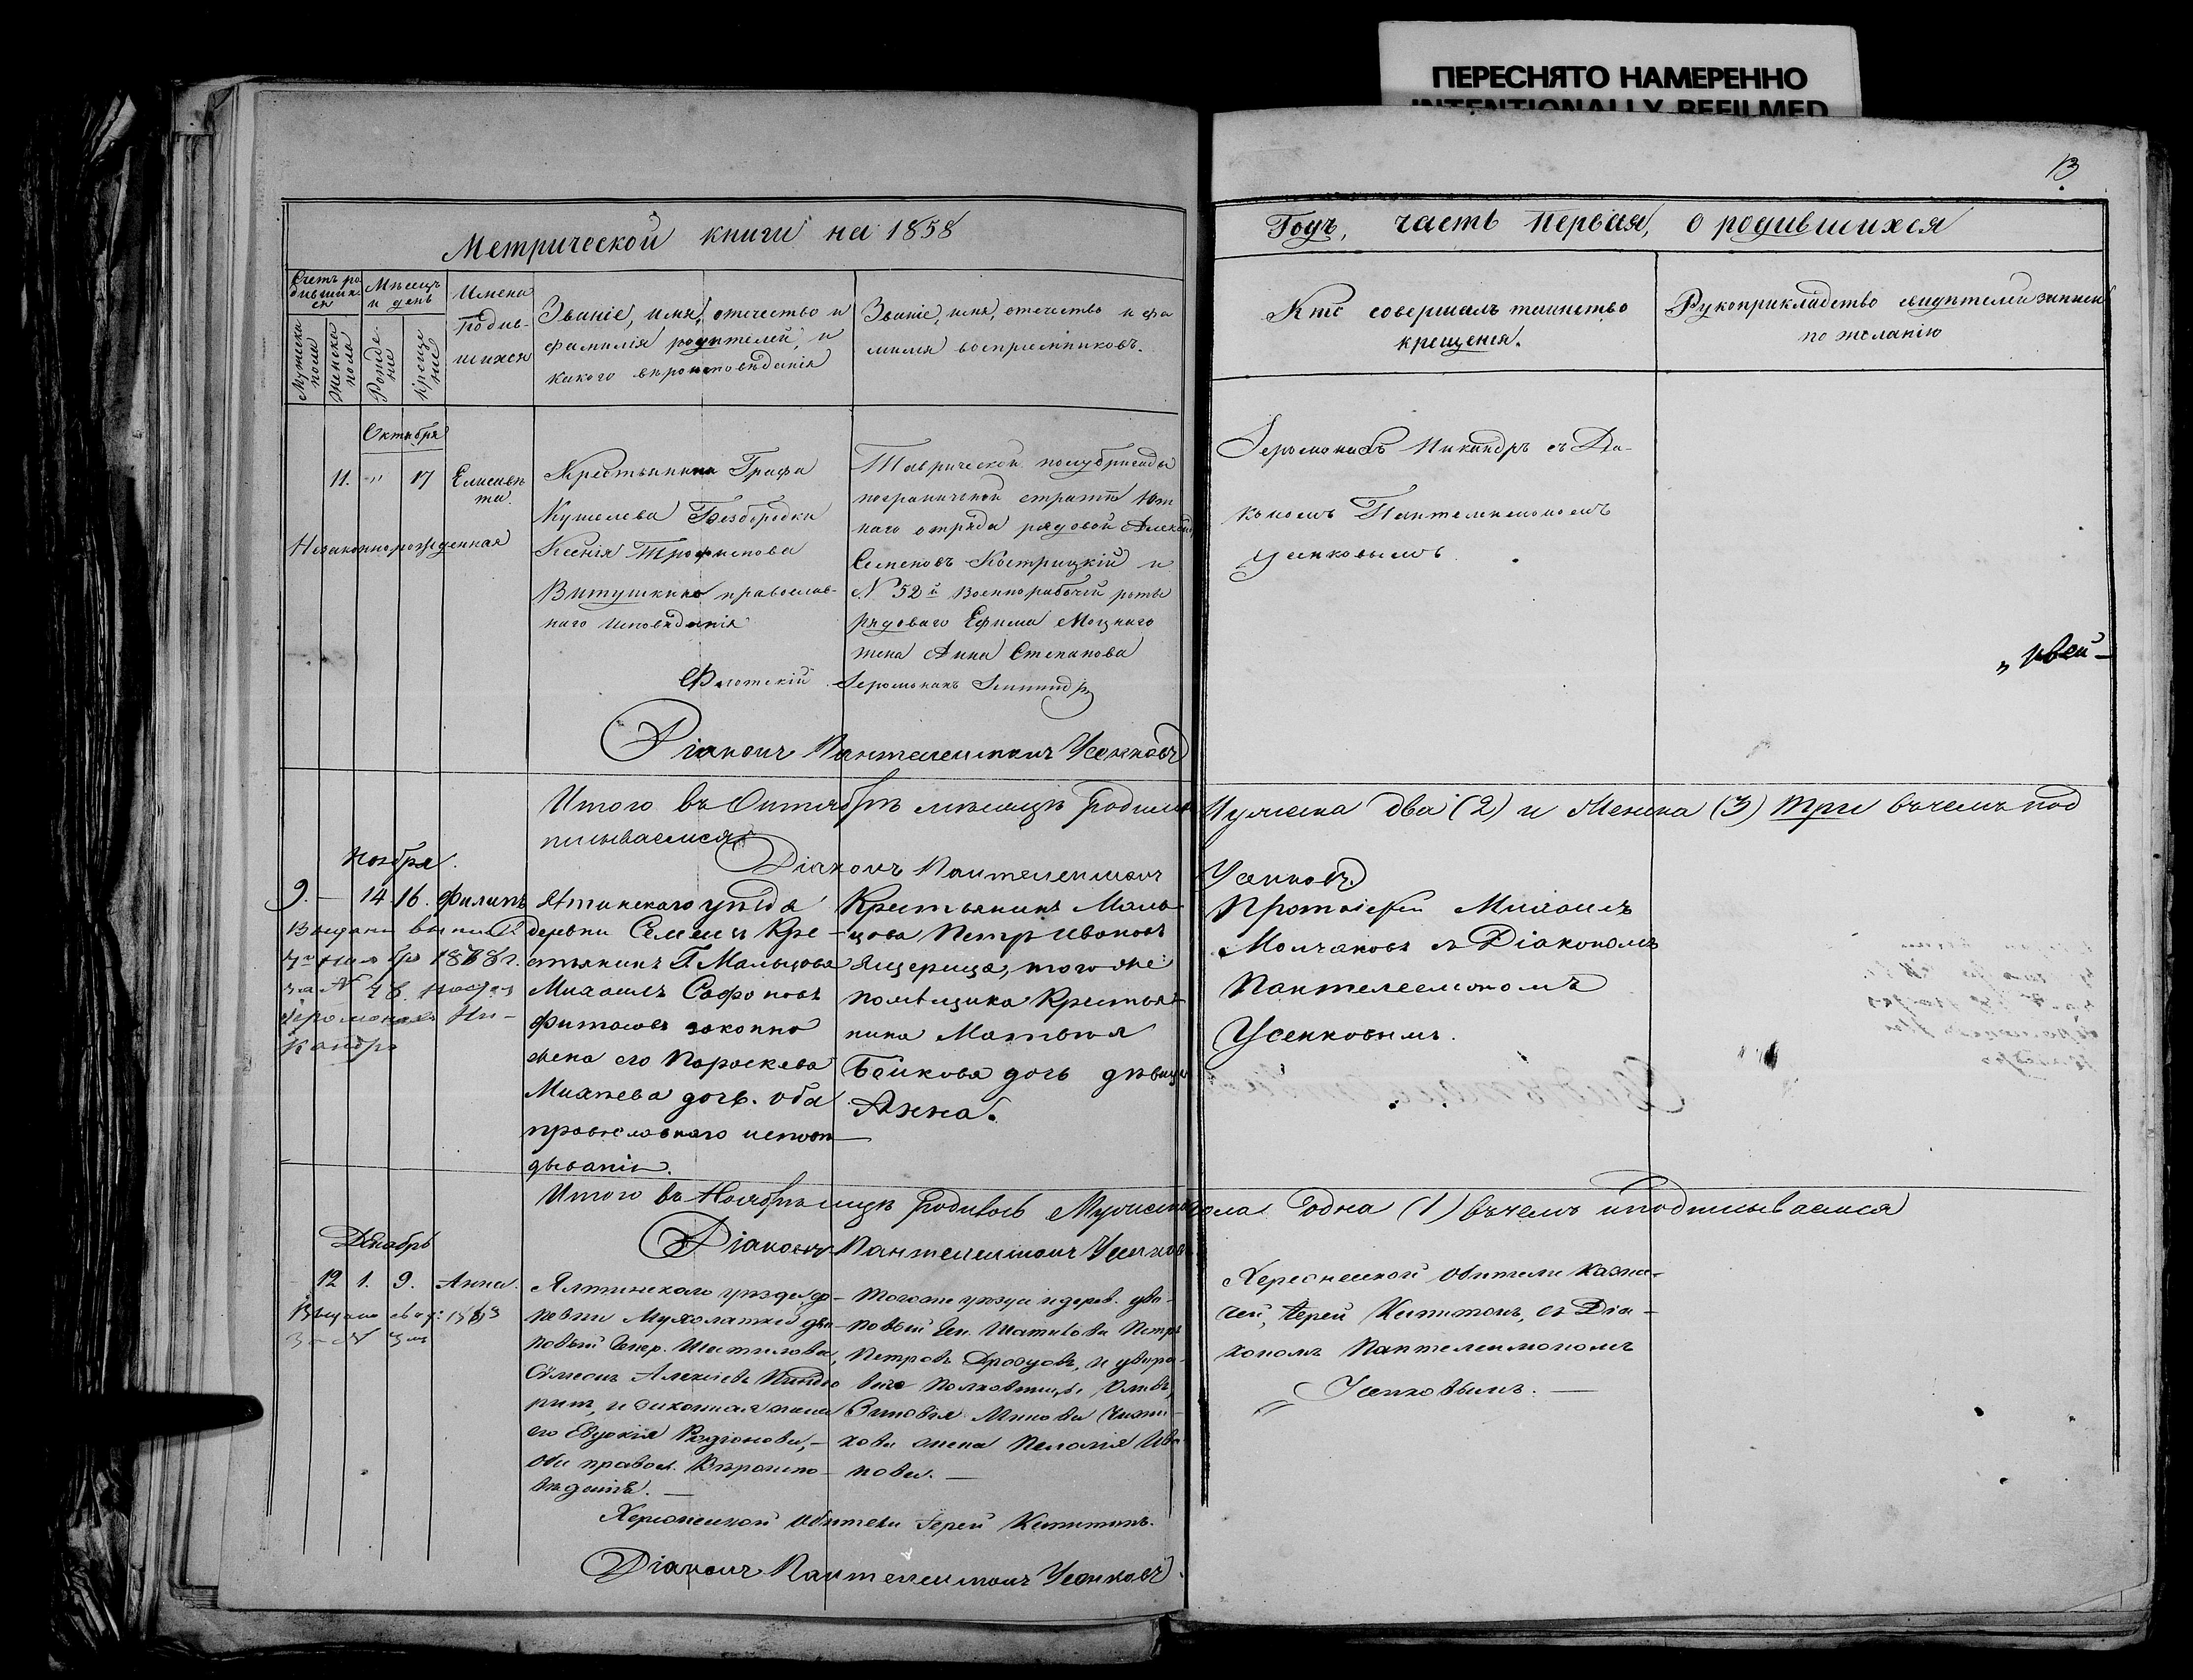 ПЕРЕСНЯТО НАМЕРЕННО
INTENTIONALLY REFILMED
13
Метрической книги на 1858
Годъ, часть первая, о родившихся
Счетъ ро-
дивших-
ся
Мѣсяцъ
и день
Мужска
пола
Женска
пола
Рожде-
ніе
Креще-
ніе
Имена
родив-
шихся
Званіе, имя, отчество и
фамилія родителей, и
какого вѣроисповѣданія
Званіе, имя, отчество и фа
милія воспріемниковъ.
Кто совершалъ таинство
крещенія.
Рукоприкладство свидѣтелей записи
по желанію
Октября
11. " 17 Елисавѣ
та.
Незаконнорожденная
Крестьянина Графа
Кушелева Безбородки
Ксенія Трофимова
Витушкина православ-
наго исповѣданія
Таврической полубригады
пограничной стражи
наго отряда рядовой Алексѣй
Семеновъ Костри­цкій и
N 52й Военнорабочей роты
рядоваго Ефима Моцнаго
жена Анна Степанова
Іеромонахъ Никандръ съ Діа-
кономъ Пантелеимономъ
Усенковымъ
Флотскій Іеромонахъ
Діаконъ Пантелеимонъ Усенковъ
Итого въ Октябрѣ мѣсяцѣ родилось Мужеска два (2) и Женска (3) три въ чемъ под
писываемся
Діаконъ Пантелеимонъ Усенковъ
Ноября.
9. — 14 16. Филипъ
Выдано
за N 48
Іеромонахъ Ни-
кандръ
Ялтинскаго уѣзда
деревни Семеисъ Кре-
стьянинъ Г. Мальцова
Михаилъ Сафоновъ
законно
жена его Параскева
Михѣева дочь. оба
православнаго исповѣ
дыванія.
Крестьянинъ Маль-
цова Петръ Ивановъ
Ящерица, того же
помѣщика Крестья-
нина Матвѣя
Бойкова дочь дѣвица
Анна.
Протоіерей Михаилъ
Молчановъ съ Діакономъ
Пантелеемономъ
Усенковымъ.
Итого въ Ноябрѣ мѣсяцѣ родилось Мужеска пола одна (1) въ чемъ и подписываемся
Діаконъ Пантелеимонъ Усенковъ
Декабрь
12 1. 9. Анна.
Выдано
за N
Ялтинскаго уѣзда де-
ревни Мухолатки дво-
ровый Генер. Шатилова,
Сѵмеонъ Алексѣевъ
и законная жена
его Евдокія Родіонова, —
оба правосл. Вѣроиспо-
вѣданія. —
Тогоже уѣзда и дерев. дво-
ровый Ген. Шатилова Петръ
Петровъ Дроздовъ, и
жена Пелагія Ива-
нова. —
Херсонесской Обители Казна-
чей, Іерей Капитонъ, съ Діа-
кономъ Пантелеимономъ
Усенковымъ. —
Херсонесской Обители Іерей Капитонъ.
Діаконъ Пантелеимонъ Усенковъ.